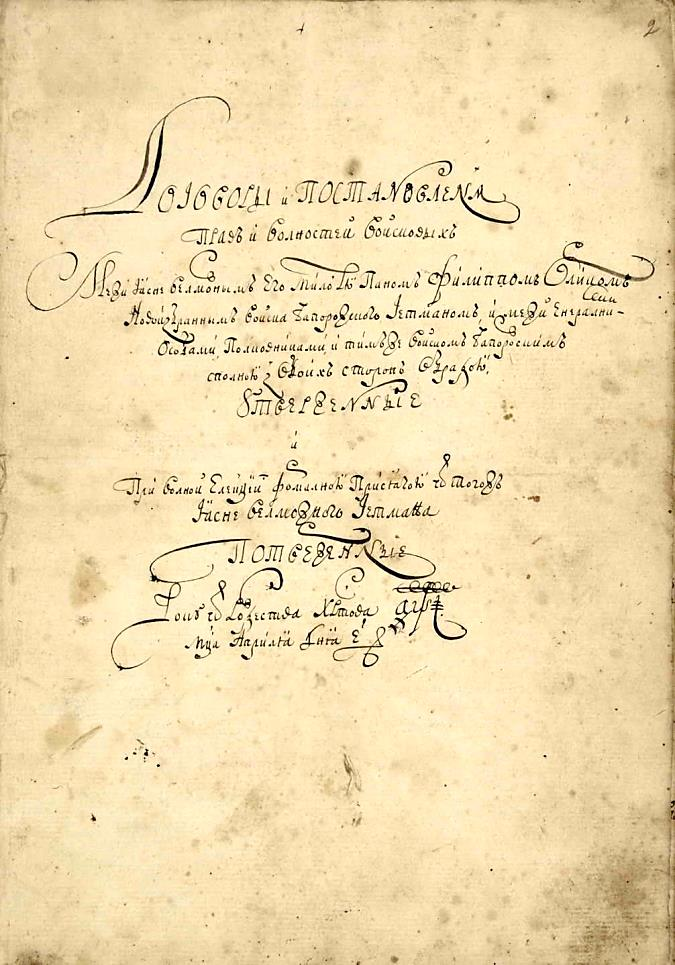 2
Договоры и Постановленѧ
Правъ и волностей войсковыхъ
Межи Ясне велможнымъ Его Милостю Паномъ Филиппомъ Орликомъ
Новоизбраннымъ войска Запорожского Гетманомъ, и межи Енералними
Особами, Полковниками, и тимъже войскомъ Запорожскимъ
сполною з обоихъ сторонъ обрадою
Утверженные
и
При волной Елекціи формалною Присягою ѿ тогожъ
Ясне велможного Гетмана
Потверженные
Року ѿ Рожества Христова ҂аѱі
Мца Априлія дня є҃